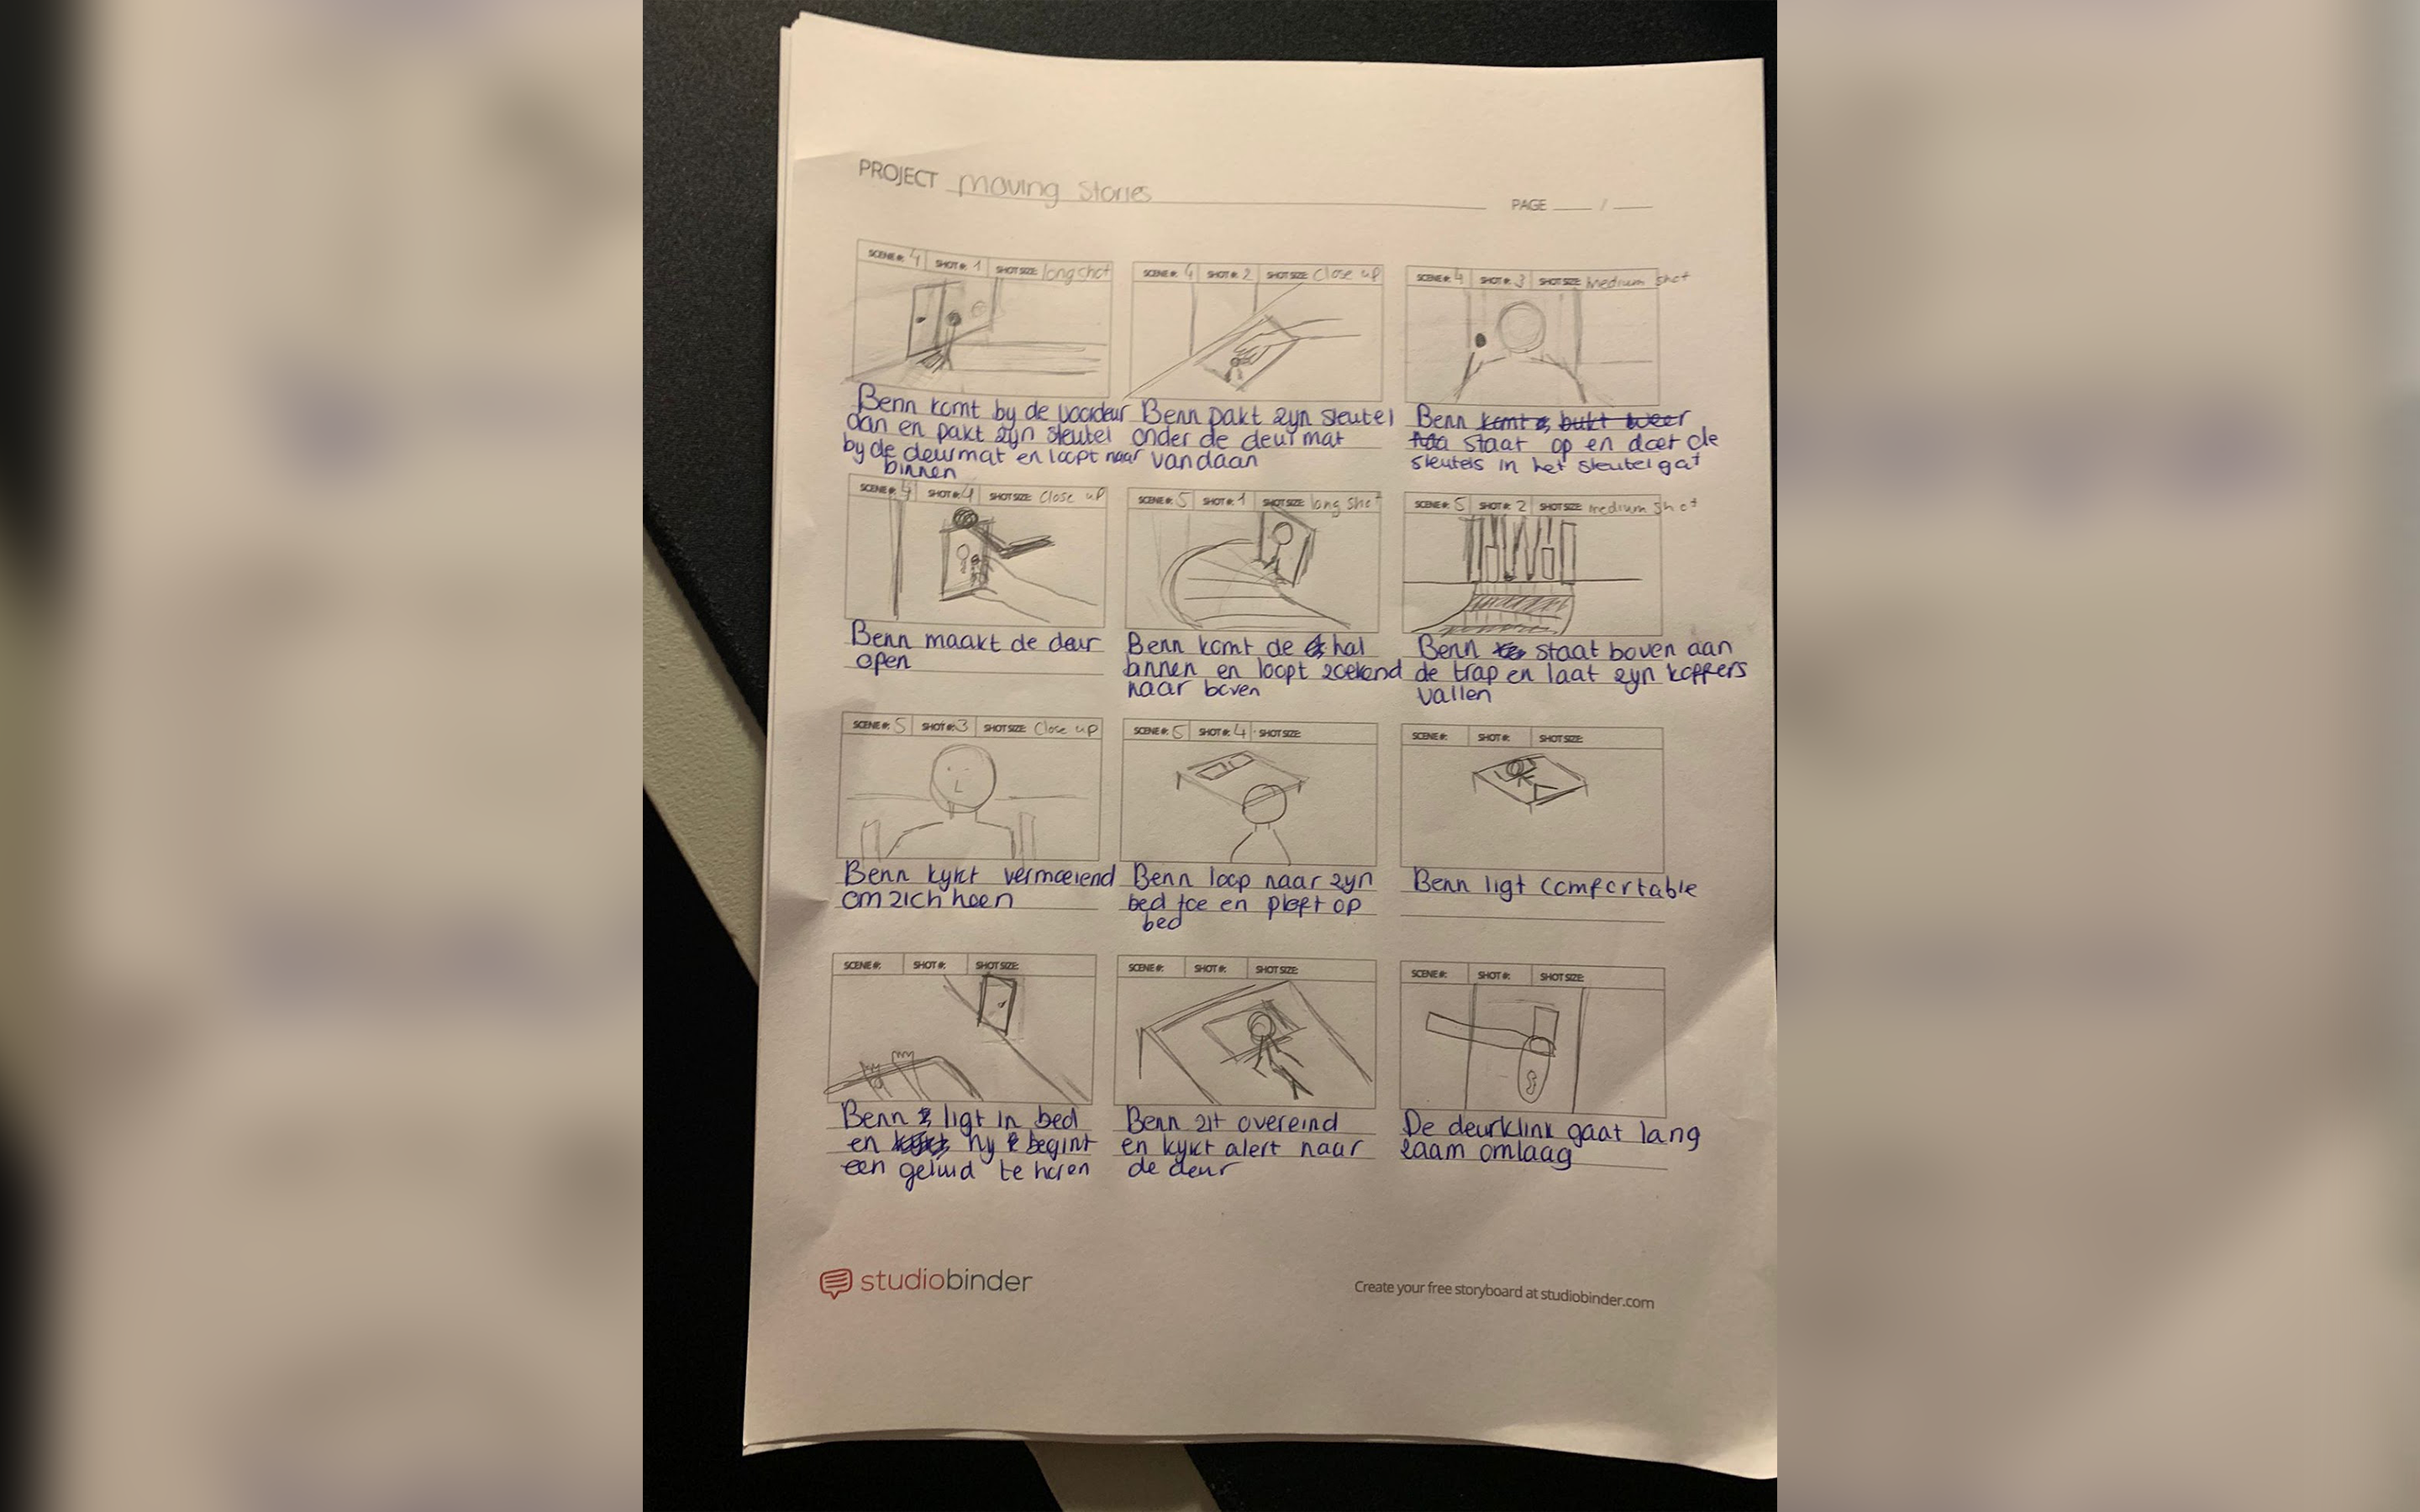 PROJECT Moving Stories
PAGE ____ / ____
SCENE #: 4 SHOT #: 1 SHOT SIZE: long shot
Benn komt by de voordeur
aan en pakt zyn sleutel
by de deurmat en loopt naar
binnen
SCENE #: 4 SHOT #: 2 SHOT SIZE: Close up
Benn pakt zyn sleutel
onder de deurmat
vandaan
SCENE #: 4 SHOT #: 3 SHOT SIZE: Medium shot
Benn komt bukt weer
staat op en doet de
sleutels in het sleutelgat
SCENE #: 4 SHOT #: 4 SHOT SIZE: Close up
Benn maakt de deur
open
SCENE #: 5 SHOT #: 1 SHOT SIZE: long shot
Benn komt de hal
binnen en loopt zoekend
naar boven
SCENE #: 5 SHOT #: 2 SHOT SIZE: medium shot
Benn staat boven aan
de trap en laat zyn koffers
vallen
SCENE #: 5 SHOT #: 3 SHOT SIZE: Close up
Benn kykt vermoeiend
om zich heen
SCENE #: 5 SHOT #: 4 SHOT SIZE:
Benn loop naar zyn
bed toe en ploft op
bed
SCENE #: SHOT #: SHOT SIZE:
Benn ligt comfortable
SCENE #: SHOT #: SHOT SIZE:
Benn ligt in bed
en hy begint
een geluid te horen
SCENE #: SHOT #: SHOT SIZE:
Benn zit overeind
en kykt alert naar
de deur
SCENE #: SHOT #: SHOT SIZE:
De deurklink gaat lang
zaam omlaag
studiobinder
Create your free storyboard at studiobinder.com